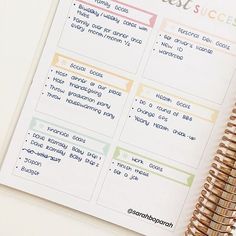 SUCCESS
Family Goals
• Biweekly/weekly dates with
Hubs
• Family over for dinner once
every month/month ½
Personal Dev. Goals
• Get driver's license
• New ID
• wardrobe
Social Goals
• Host dinner at our place
• Host thanksgiving
• Throw graduation party
• Throw housewarming party
Health Goals
• Do a round of BBG
• Change GPs
• Yearly Health check-up
Financial Goals
• Dave Ramsey Baby Step 1
• Dave Ramsey Baby Step 2
• Japan
• Budget
Work Goals
• Finish thesis
• Get a job
@sarahboparah